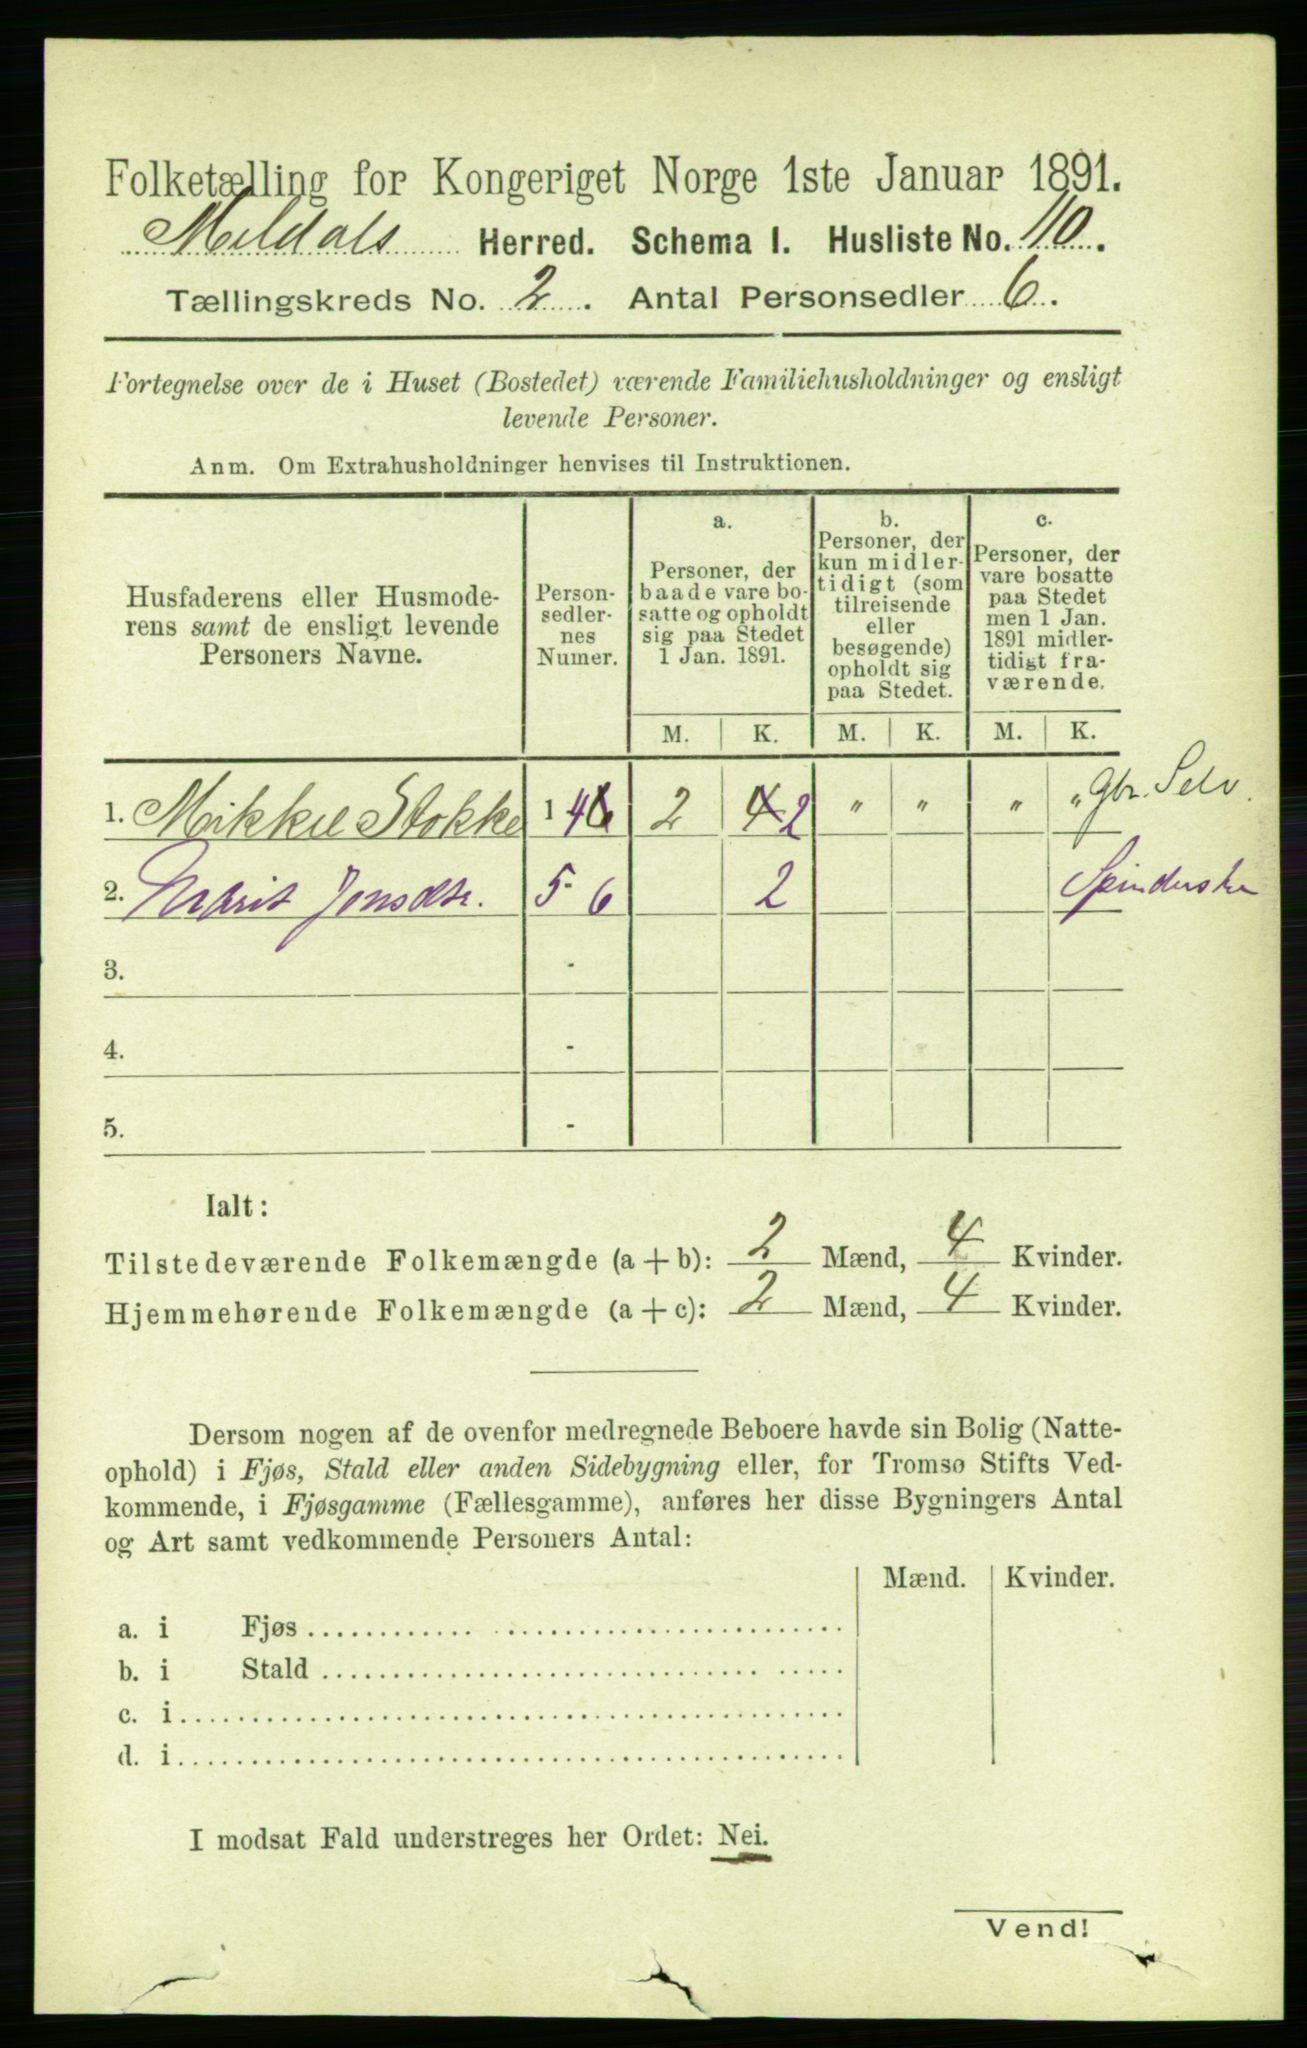 Folketælling for Kongeriget Norge 1ste Januar 1891.
Meldals Herred. Schema I. Husliste No. 110.
Tællingskreds No. 2. Antal Personsedler 6.
Fortegnelse over de i Huset (Bostedet) værende Familiehusholdninger og ensligt
levende Personer.
Anm. Om Extrahusholdninger henvises til Instruktionen.
Husfaderens eller Husmode-
rens samt de ensligt levende
Personers Navne.
Person-
sedler-
nes
Numer.
a.
Personer, der
baade vare bo-
satte og opholdt
sig paa Stedet
1 Jan. 1891.
b.
Personer, der
kun midler-
tidigt (som
tilreisende
eller
besøgende)
opholdt sig
paa Stedet.
c.
Personer, der
vare bosatte
paa Stedet
men 1 Jan.
1891 midler-
tidigt fra-
værende.
M. K. M. K. M. K.
1. Mikkel Stokke 1 4 6 2 4 2 " " " " Gbr. Selv.
2. Marit Jonsdtr. 5 - 6 2 Spinderske
3. -
4. -
5. -
Ialt:
Tilstedeværende Folkemængde (a + b): 2 Mænd, 4 Kvinder.
Hjemmehørende Folkemængde (a + c): 2 Mænd, 4 Kvinder.
Dersom nogen af de ovenfor medregnede Beboere havde sin Bolig (Natte-
ophold) i Fjøs, Stald eller anden Sidebygning eller, for Tromsø Stifts Ved-
kommende, i Fjøsgamme (Fællesgamme), anføres her disse Bygningers Antal
og Art samt vedkommende Personers Antal:
Mænd. Kvinder.
a. i Fjøs
b. i Stald
c. i
d. i
I modsat Fald understreges her Ordet: Nei.
Vend!